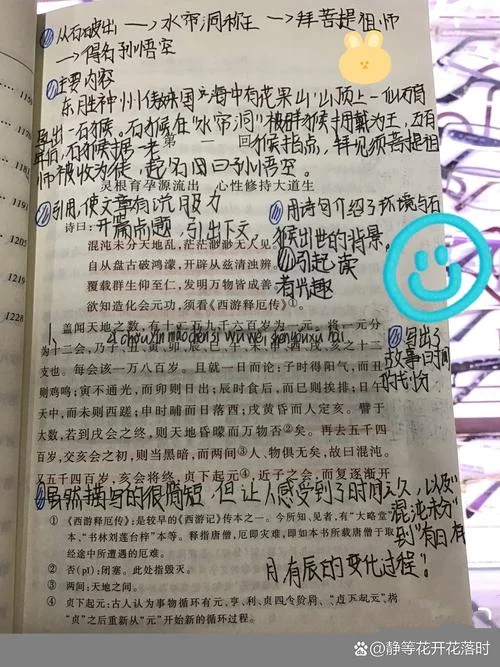 从石破出 → 水帘洞称王 → 拜菩提祖师
→ 得名孙悟空
主要内容
东胜神州傲来国海中有花果山山顶上一仙石
导出一石猴。石猴在“水帘洞”被群猴拥戴为王,
第一回
猴指点,拜见须菩提祖
师被收为徒,起名曰孙悟空。
灵根育孕源流出 心性修持大道生
引用,使文章有说服力
诗曰:开篇点题,引出下文
用诗句介绍了环境与石
猴出世的背景。
引起读
者兴趣
混沌未分天地乱,茫茫渺渺无人见。
自从盘古破鸿蒙,开辟从兹清浊辨。
覆载群生仰至仁,发明万物皆成善。
欲知造化会元功,须看《西游释厄传》①。
盖闻天地之数,有十二万九千六百岁为一元。将一元分
为十二会,乃子、丑、寅、卯、辰、巳、午、未、申、酉、戌、亥之十二
支也。每会该一万八百岁。且就一日而论:子时得阳气,而丑
则鸡鸣;寅不通光,而卯则日出;辰时食后,而巳则挨排;日午
天中,而未则西蹉;申时晡而日落酉;戌黄昏而人定亥。譬于
大数,若到戌会之终,则天地昏曚而万物否②矣。再去五千四
百岁,交亥会之初,则当黑暗,而两间③人、物俱无矣,故曰混沌。
又五千四百岁,亥会将终,贞下起元④,近子之会,而复逐渐开
写出了
故事时间
的划分
虽然描写的很简短,但让人感受到了时间之久,以及
“混沌未分”
到“有日、有
月有辰的变化过程!
① 《西游释厄传》:是较早的《西游记》传本之一。今所知、见者,有“大略堂
本、“书林刘莲台梓”本等。释指唐僧,厄即灾难,即如本书所载唐僧于取
经途中所遭遇的厄难。
② 否(pǐ):闭塞。此处指毁灭。
③ 两间:天地之间。
④ 贞下起元:古人认为事物循环有元、亨、利、贞四个阶段、“贞下起元”指
“贞”之后重新从“元”开始新的循环过程。
1195
1205
1219
1228
@静等花开花落时